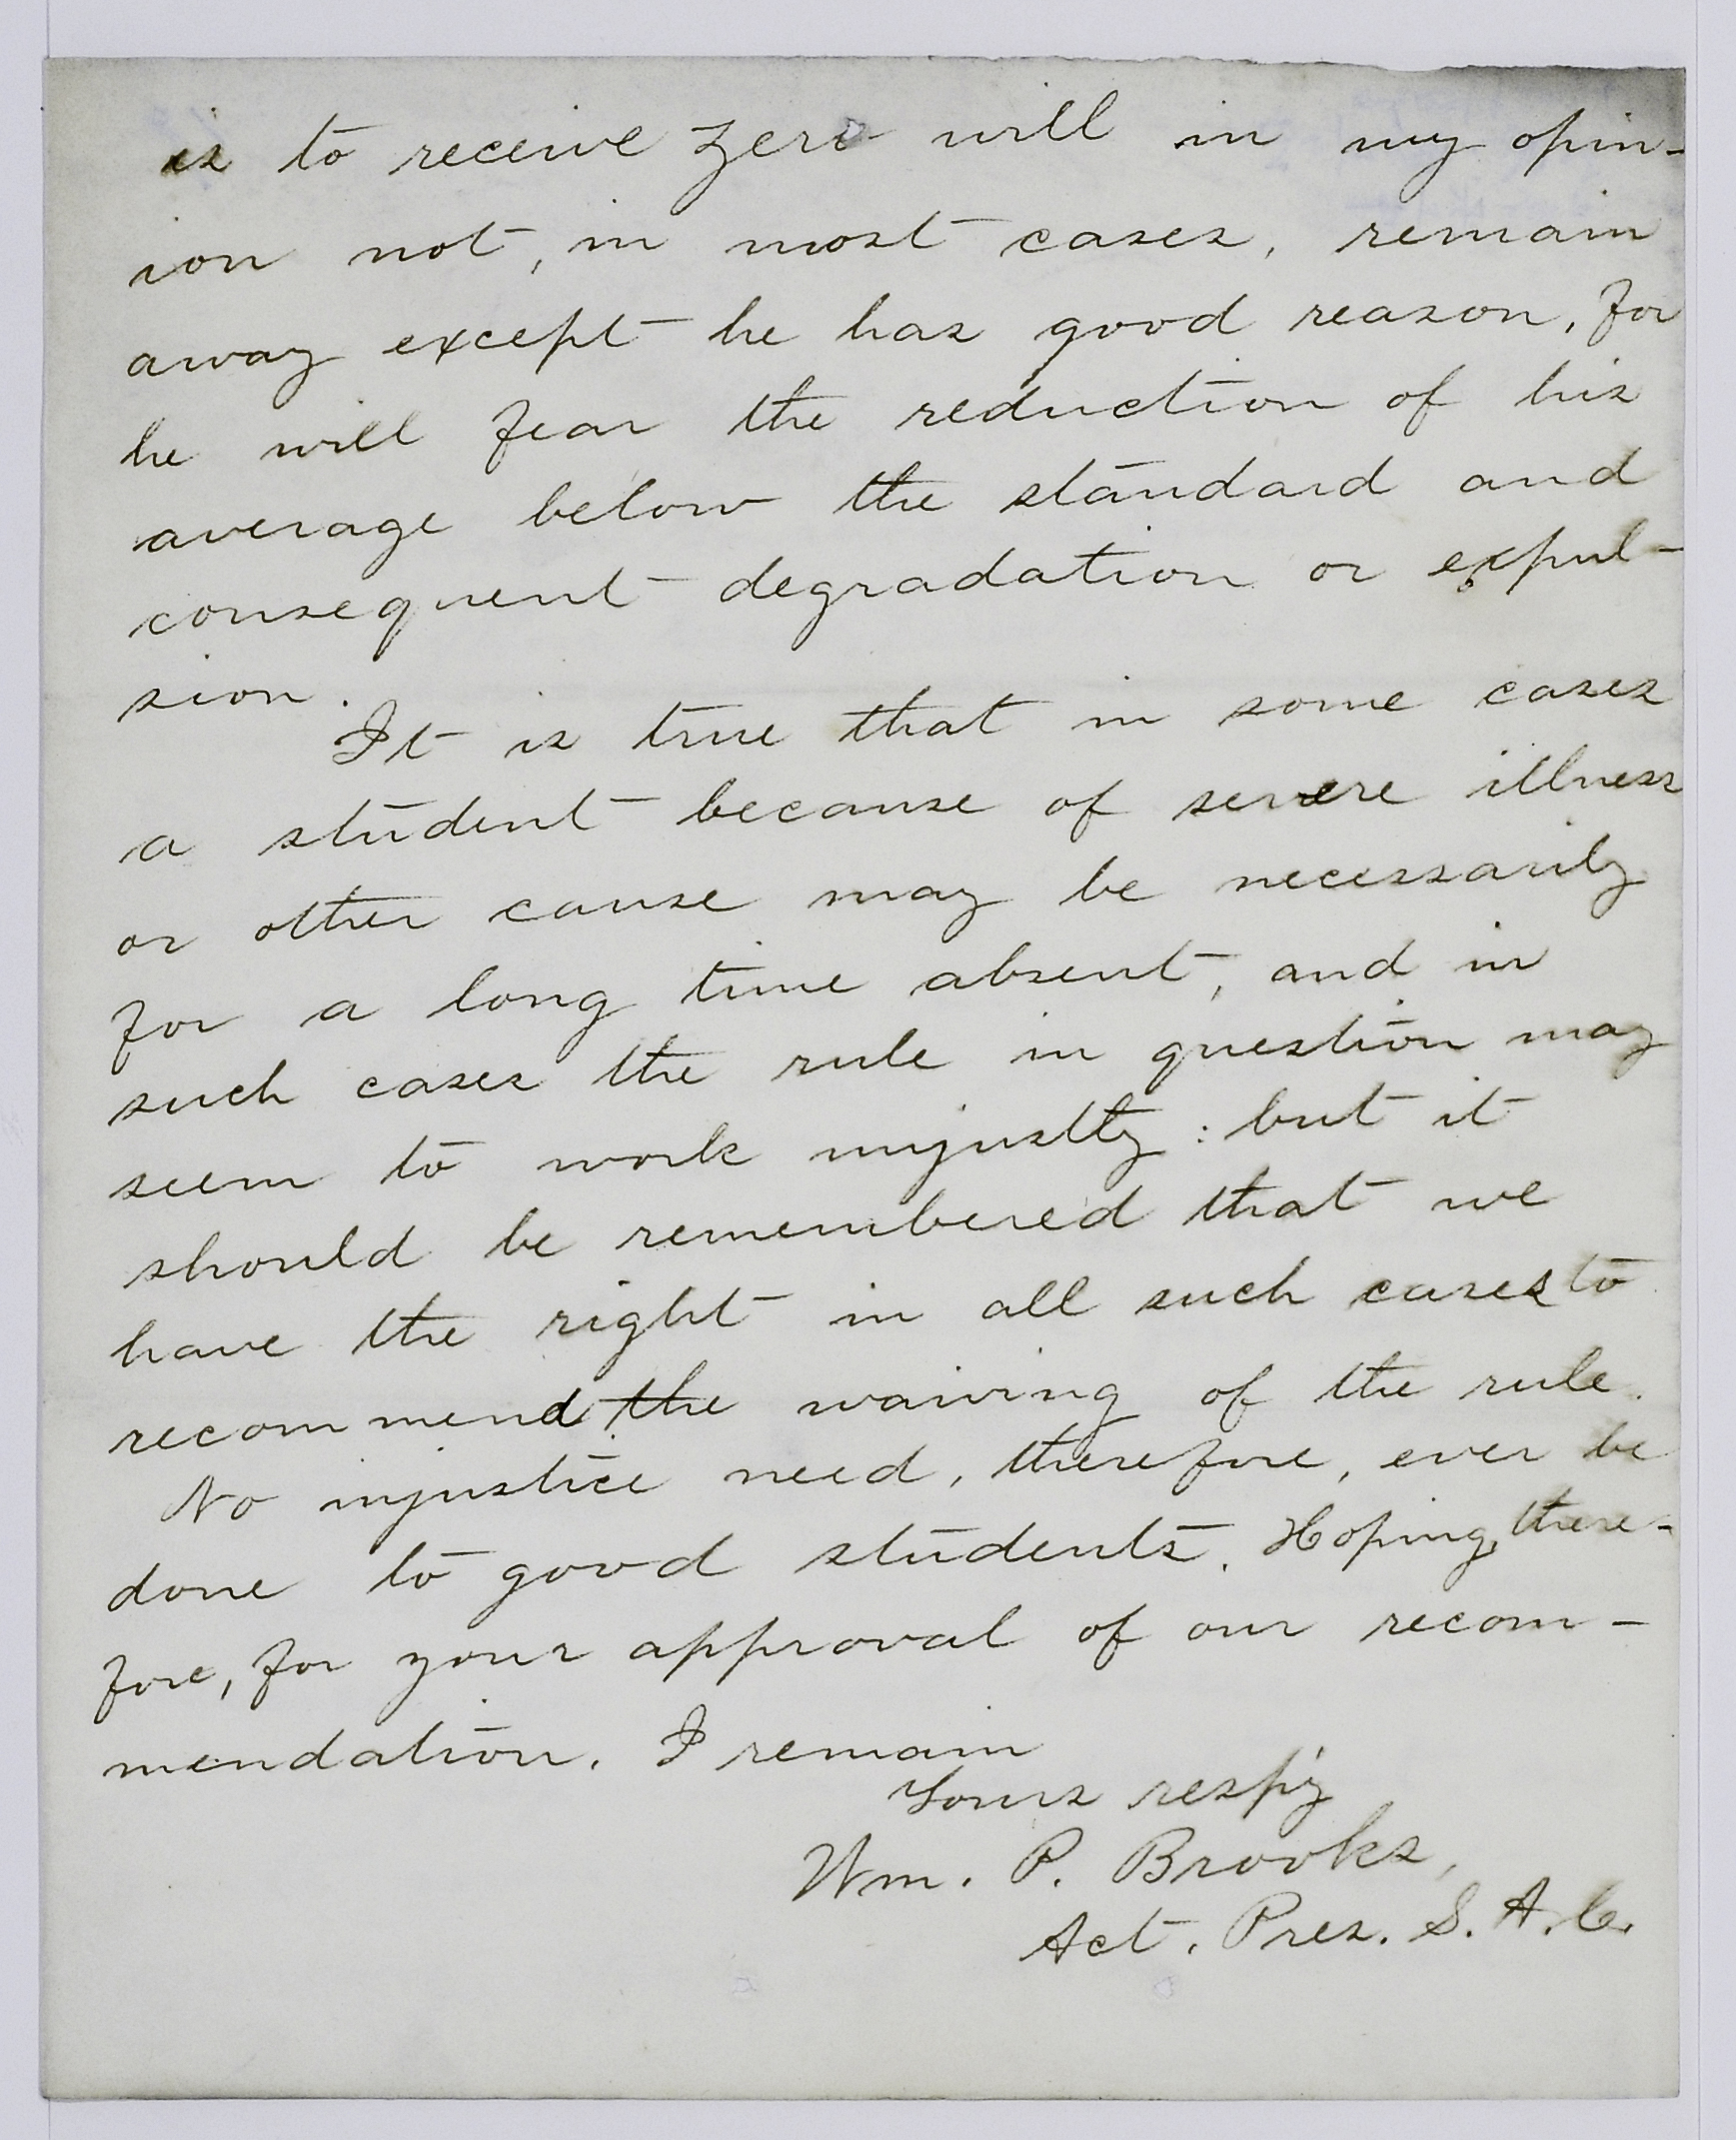 is to receive zero will in my opin-
ion not, in most cases, remain
away except he has good reason, for
he will fear the reduction of his
average below the standard and
consequent degradation or expul-
sion.
It is true that in some cases
a student because of severe illness
or other cause may be necessarily
for a long time absent, and in
such cases the rule in question may
seem to work unjustly: but it
should be remembered that we
have the right in all such cases to
recommend the waiving of the rule.
No injustice need, therefore, ever be
done to good students. Hoping, there-
fore, for your approval of our recom-
mendation. I remain
Yours resp'y
Wm. P. Brooks,
Act. Pres. S. A. C.